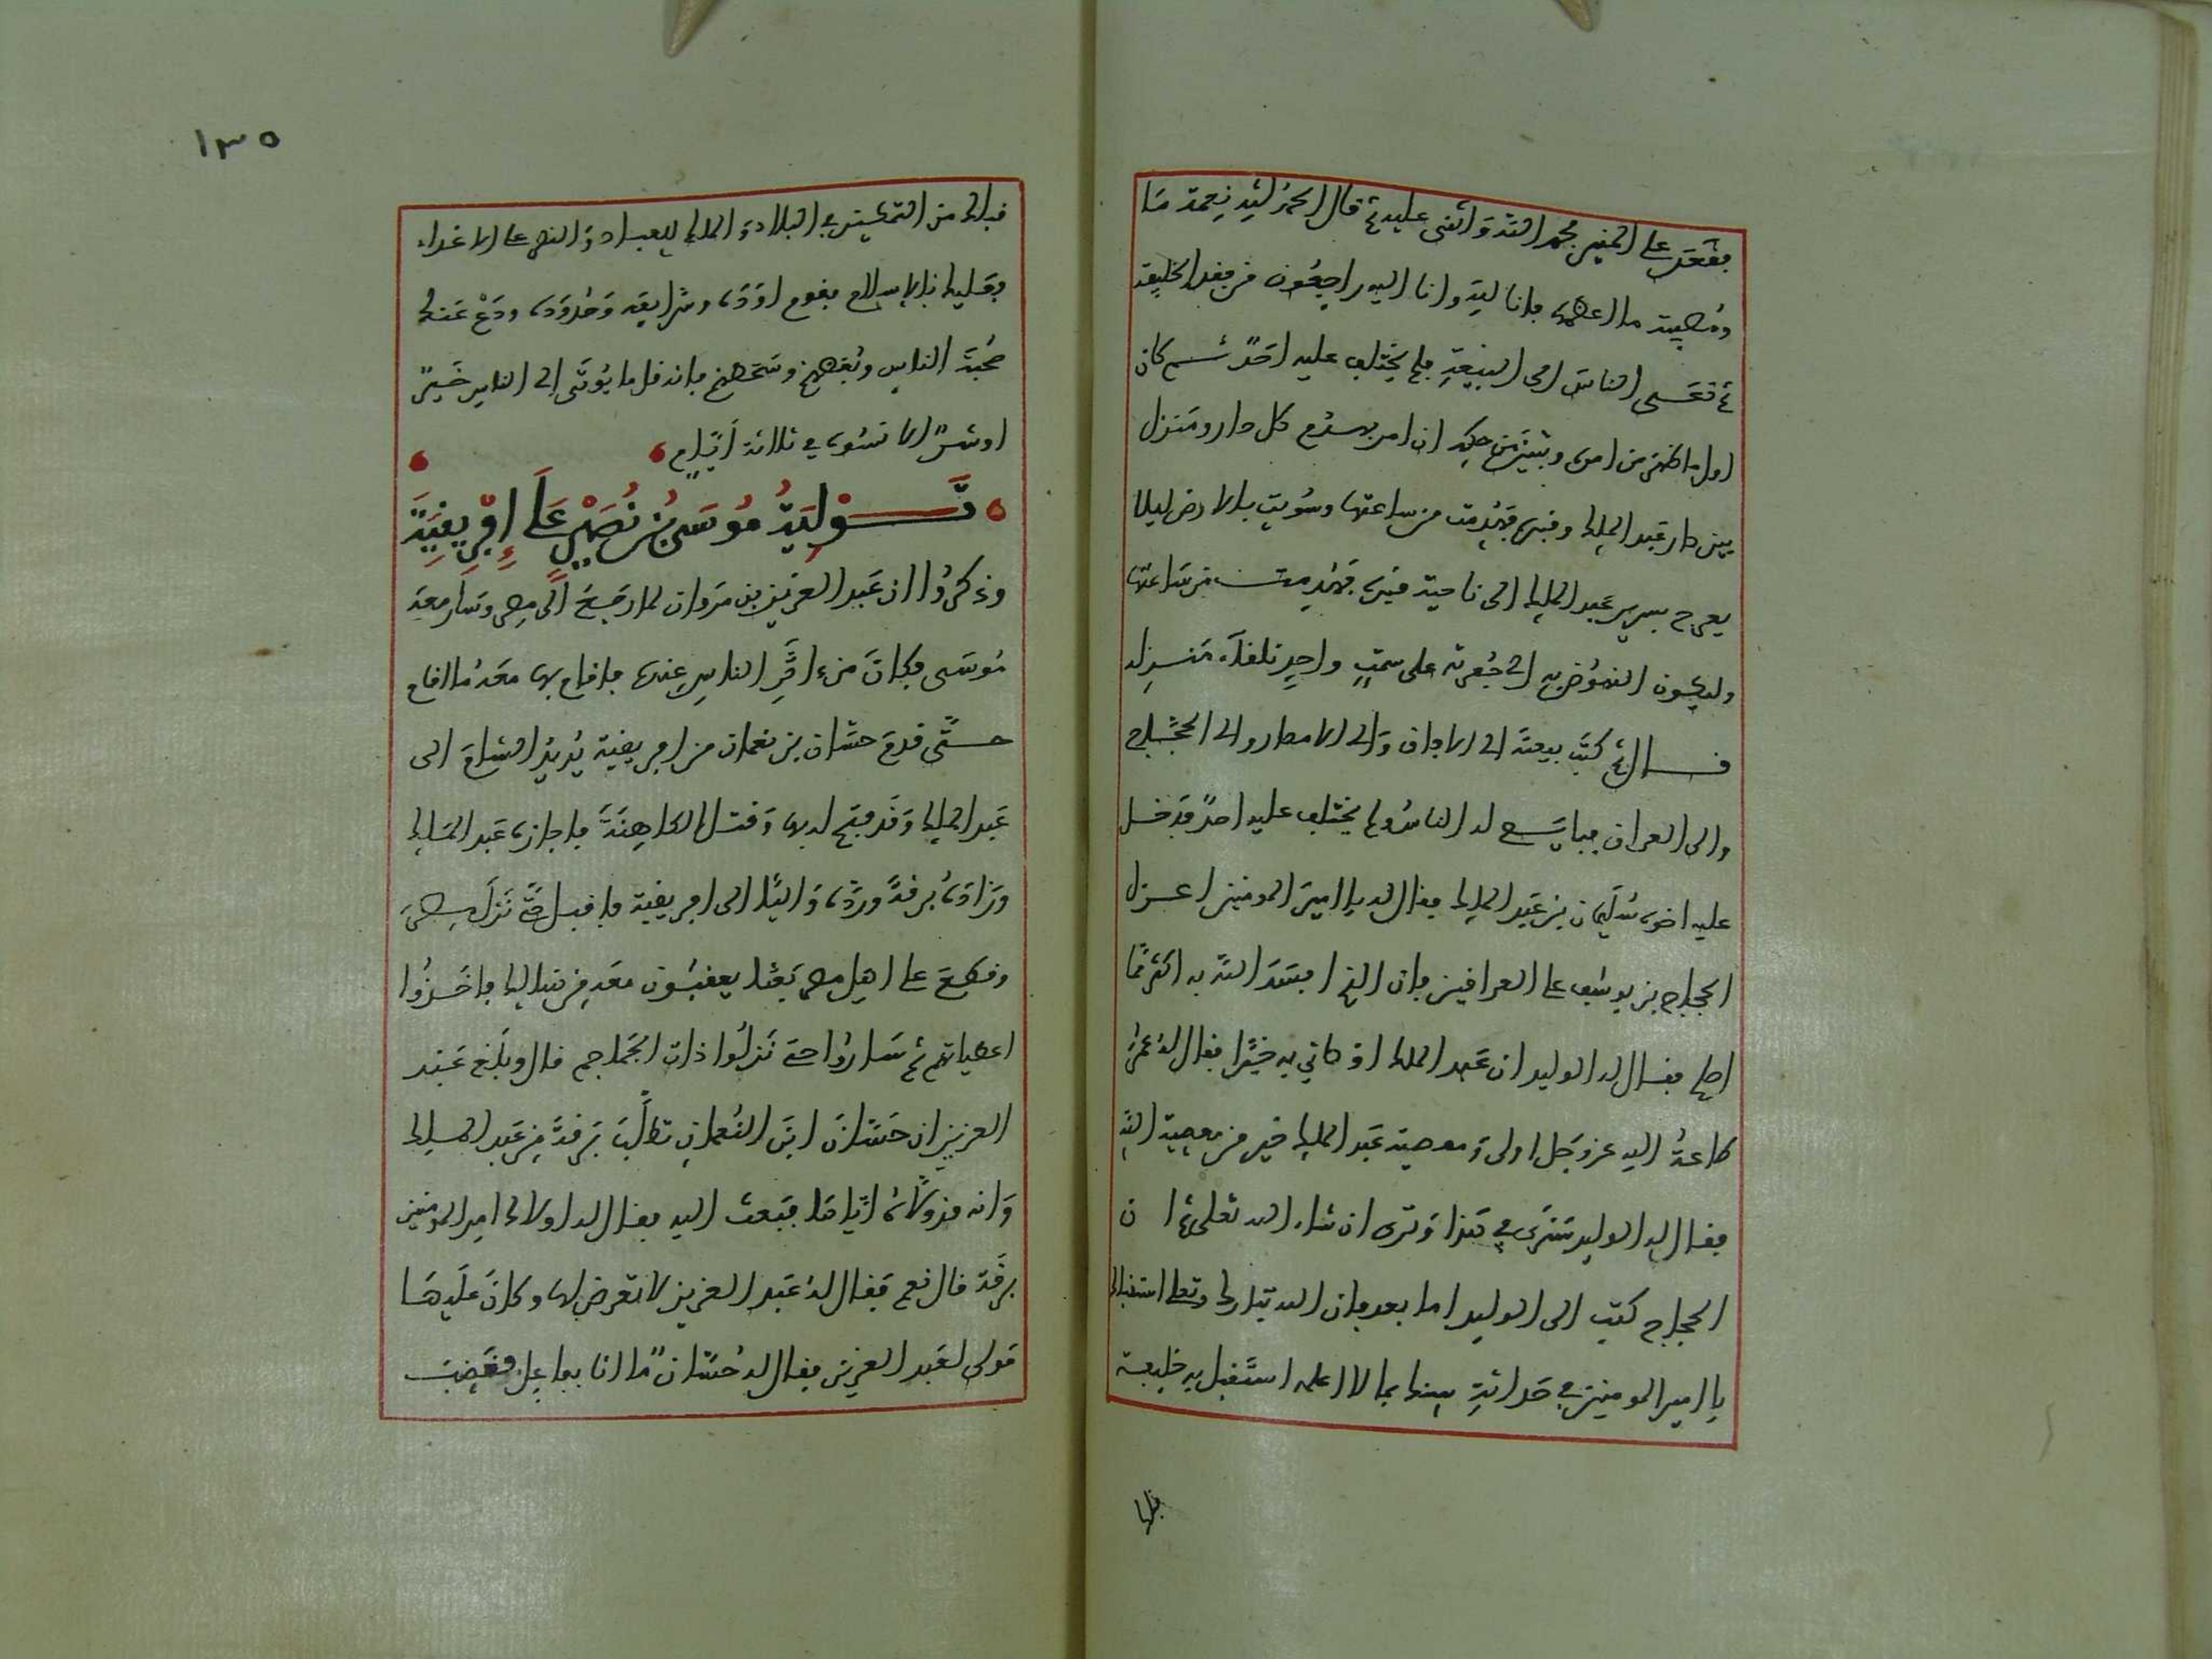 فقعد على المنبر فحمد الله واثنى عليه ثم قال الحمد لله نعمة ما
ومصيبة ما اعظمها فانا لله وانا اليه راجعون من فقد الخليفة
ثم دعى الناس الى البيعة فلم يختلف عليه احد ثم كان
اول ما ظهر من امره وتبين من حكمه ان امر بهدم كل دار ومنزل
بين دار عبد الملك وقبره فهدمت من ساعتها وسويت بالارض ليلا
يعرج بسرير عبد الملك الى ناحية قبره فهدمت من ساعتها
وليكون النهوض به الى حفرته على سمت واحد تلقاء منزله
قال ثم كتب بيعته الى الافاق والى الامصار والى الحجاج
والى العراق فبايع له الناس ولم يختلف عليه احد فدخل
عليه اخوه سليمان بن عبد الملك فقال له يا امير المومنين اعزل
الحجاج بن يوسف على العراقين فان الذي افسد الله به اكثر مما
اصلح فقال له الوليد ان عبد الملك اوصاني به خيرا فقال له عمر
طاعة الله عز وجل اولى ومعصية عبد الملك خير من معصية الله
فقال له الوليد سنرى في هذا وترى ان شاء الله تعلى ثم ان
الحجاج كتب الى الوليد اما بعد فان الله تبارك وتعلى استقبلك
يا امير المومنين في حداثة سنك بما لا اعلمه استقبل به خليفة
قبلك
١٣٥
قبلك من التمكين في البلاد والملك للعباد والنصر على الاعداء
فعليك بالاسلام فقوم اوده وشرايعه وحدوده ودع عنك
محبة الناس وبغضهم وسخطهم فانه قل ما يوتى الى الناس خير
او شر الا نسوه في ثلاثة ايام
تولية موسى بن نصير على افريقية
وذكروا ان عبد العزيز بن مروان لما رجع الى مصر وسار معه
موسى فكان من اثر الناس عنده فاقام بها معه ما اقام
حتى قدم حسان بن نعمان من افريقية يريد الشام الى
عبد الملك وقد فتح له بها وقتل الكاهنة فاجازه عبد الملك
وزاده برقة ورده واليا الى افريقية فاقبل حتى نزل بمصر
وقطع على اهل مصر بعثا يعقبون معه من قبل فاخذوا
اعطياتهم ثم ساروا حتى نزلوا ذات الجماجم قال وبلغ عبد
العزيز ان حسان ابن النعمان طلب برقة من عبد الملك
وانه قد ولاه اياها فبعث اليه فقال له اولاك امير المومنين
برقة قال نعم فقال له عبد العزيز لا تعرض لها وكان عليها
مولى لعبد العزيز فقال له حسان ما انا بفاعل فغضب